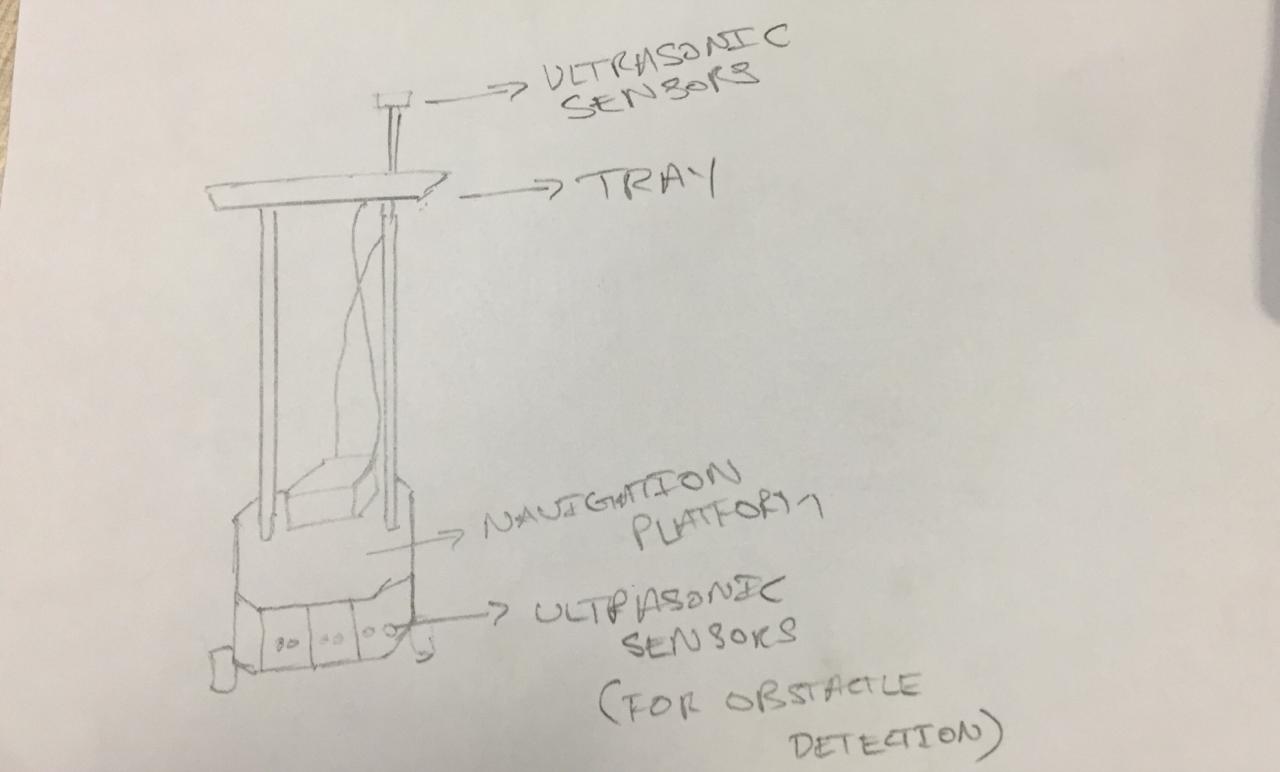 ULTRASONIC
SENSORS
TRAY
NAVIGATION
PLATFORM
ULTRASONIC
SENSORS
(FOR OBSTACTLE
DETECTION)